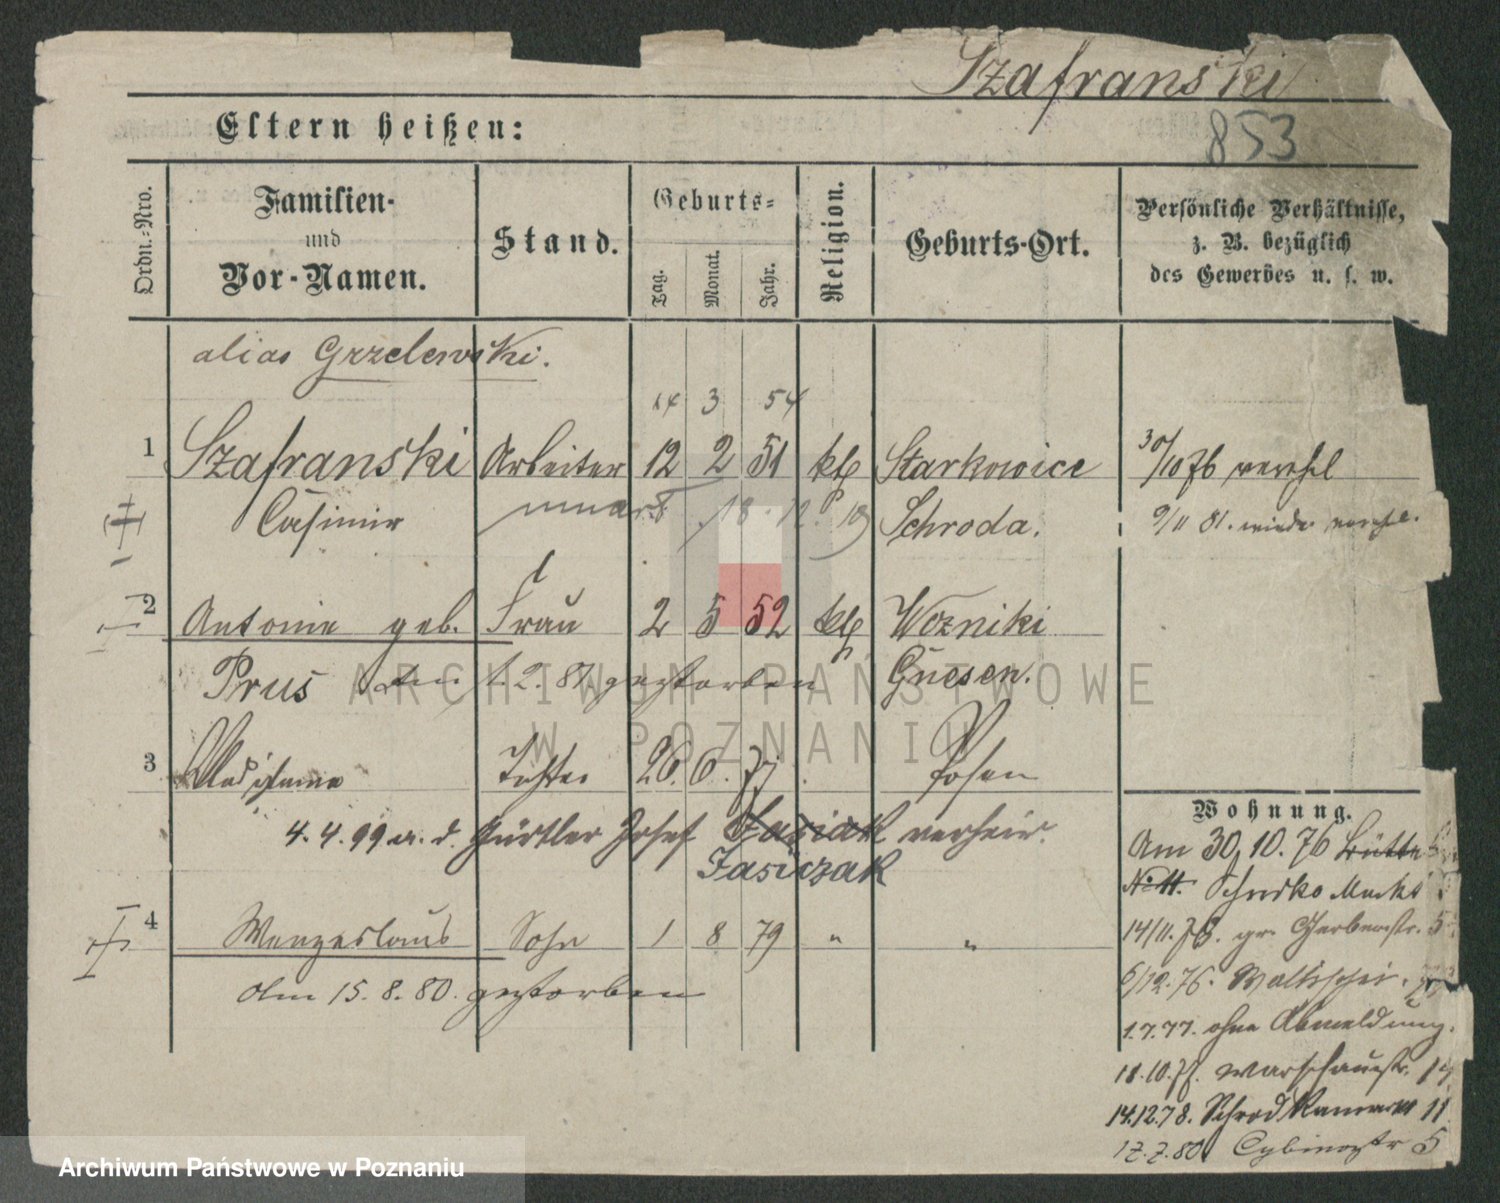 Szafranski
853
Eltern heißen:
Ordn.-Nro.
Familien-
und
Vor-Namen.
Stand.
Geburts-
Tag.
Monat.
Jahr.
Religion.
Geburts-Ort.
Persönliche Verhältnisse,
z. B. bezüglich
des Gewerbes u. s. w.
alias Grzelewski.
14 3 54
1 Szafranski Arbeiter 12 2 51 kth Starkowice 30/10 76 verehl
Casimir 18. 12. Schroda. 9/11 81. wieder verehl.
2 Antonie geb. Frau 2 5 52 kth Wozniki
Prus am 1. 2. 81. gestorben Gnesen.
3 Tochter 26. 6. 77 Posen
4. 4. 99 a. d. Gürtler Josef verheir.
Jasiczak
4 Wenzeslaus Sohn 1 8 79 " "
Am 15. 8. 80. gestorben
Wohnung.
Am 30/10. 76 Bütte
No 11. Schrodka Markt
14/11. 76. gr. Gerberstr. 5
6/12. 76. Wallischei.
1.7.77. ohne Abmeldung.
18.10.77. Warschauerstr.
14.12.78. 11
17.7.80 Cybinastr 5
ARCHIWUM PAŃSTWOWE
W POZNANIU
Archiwum Państwowe w Poznaniu